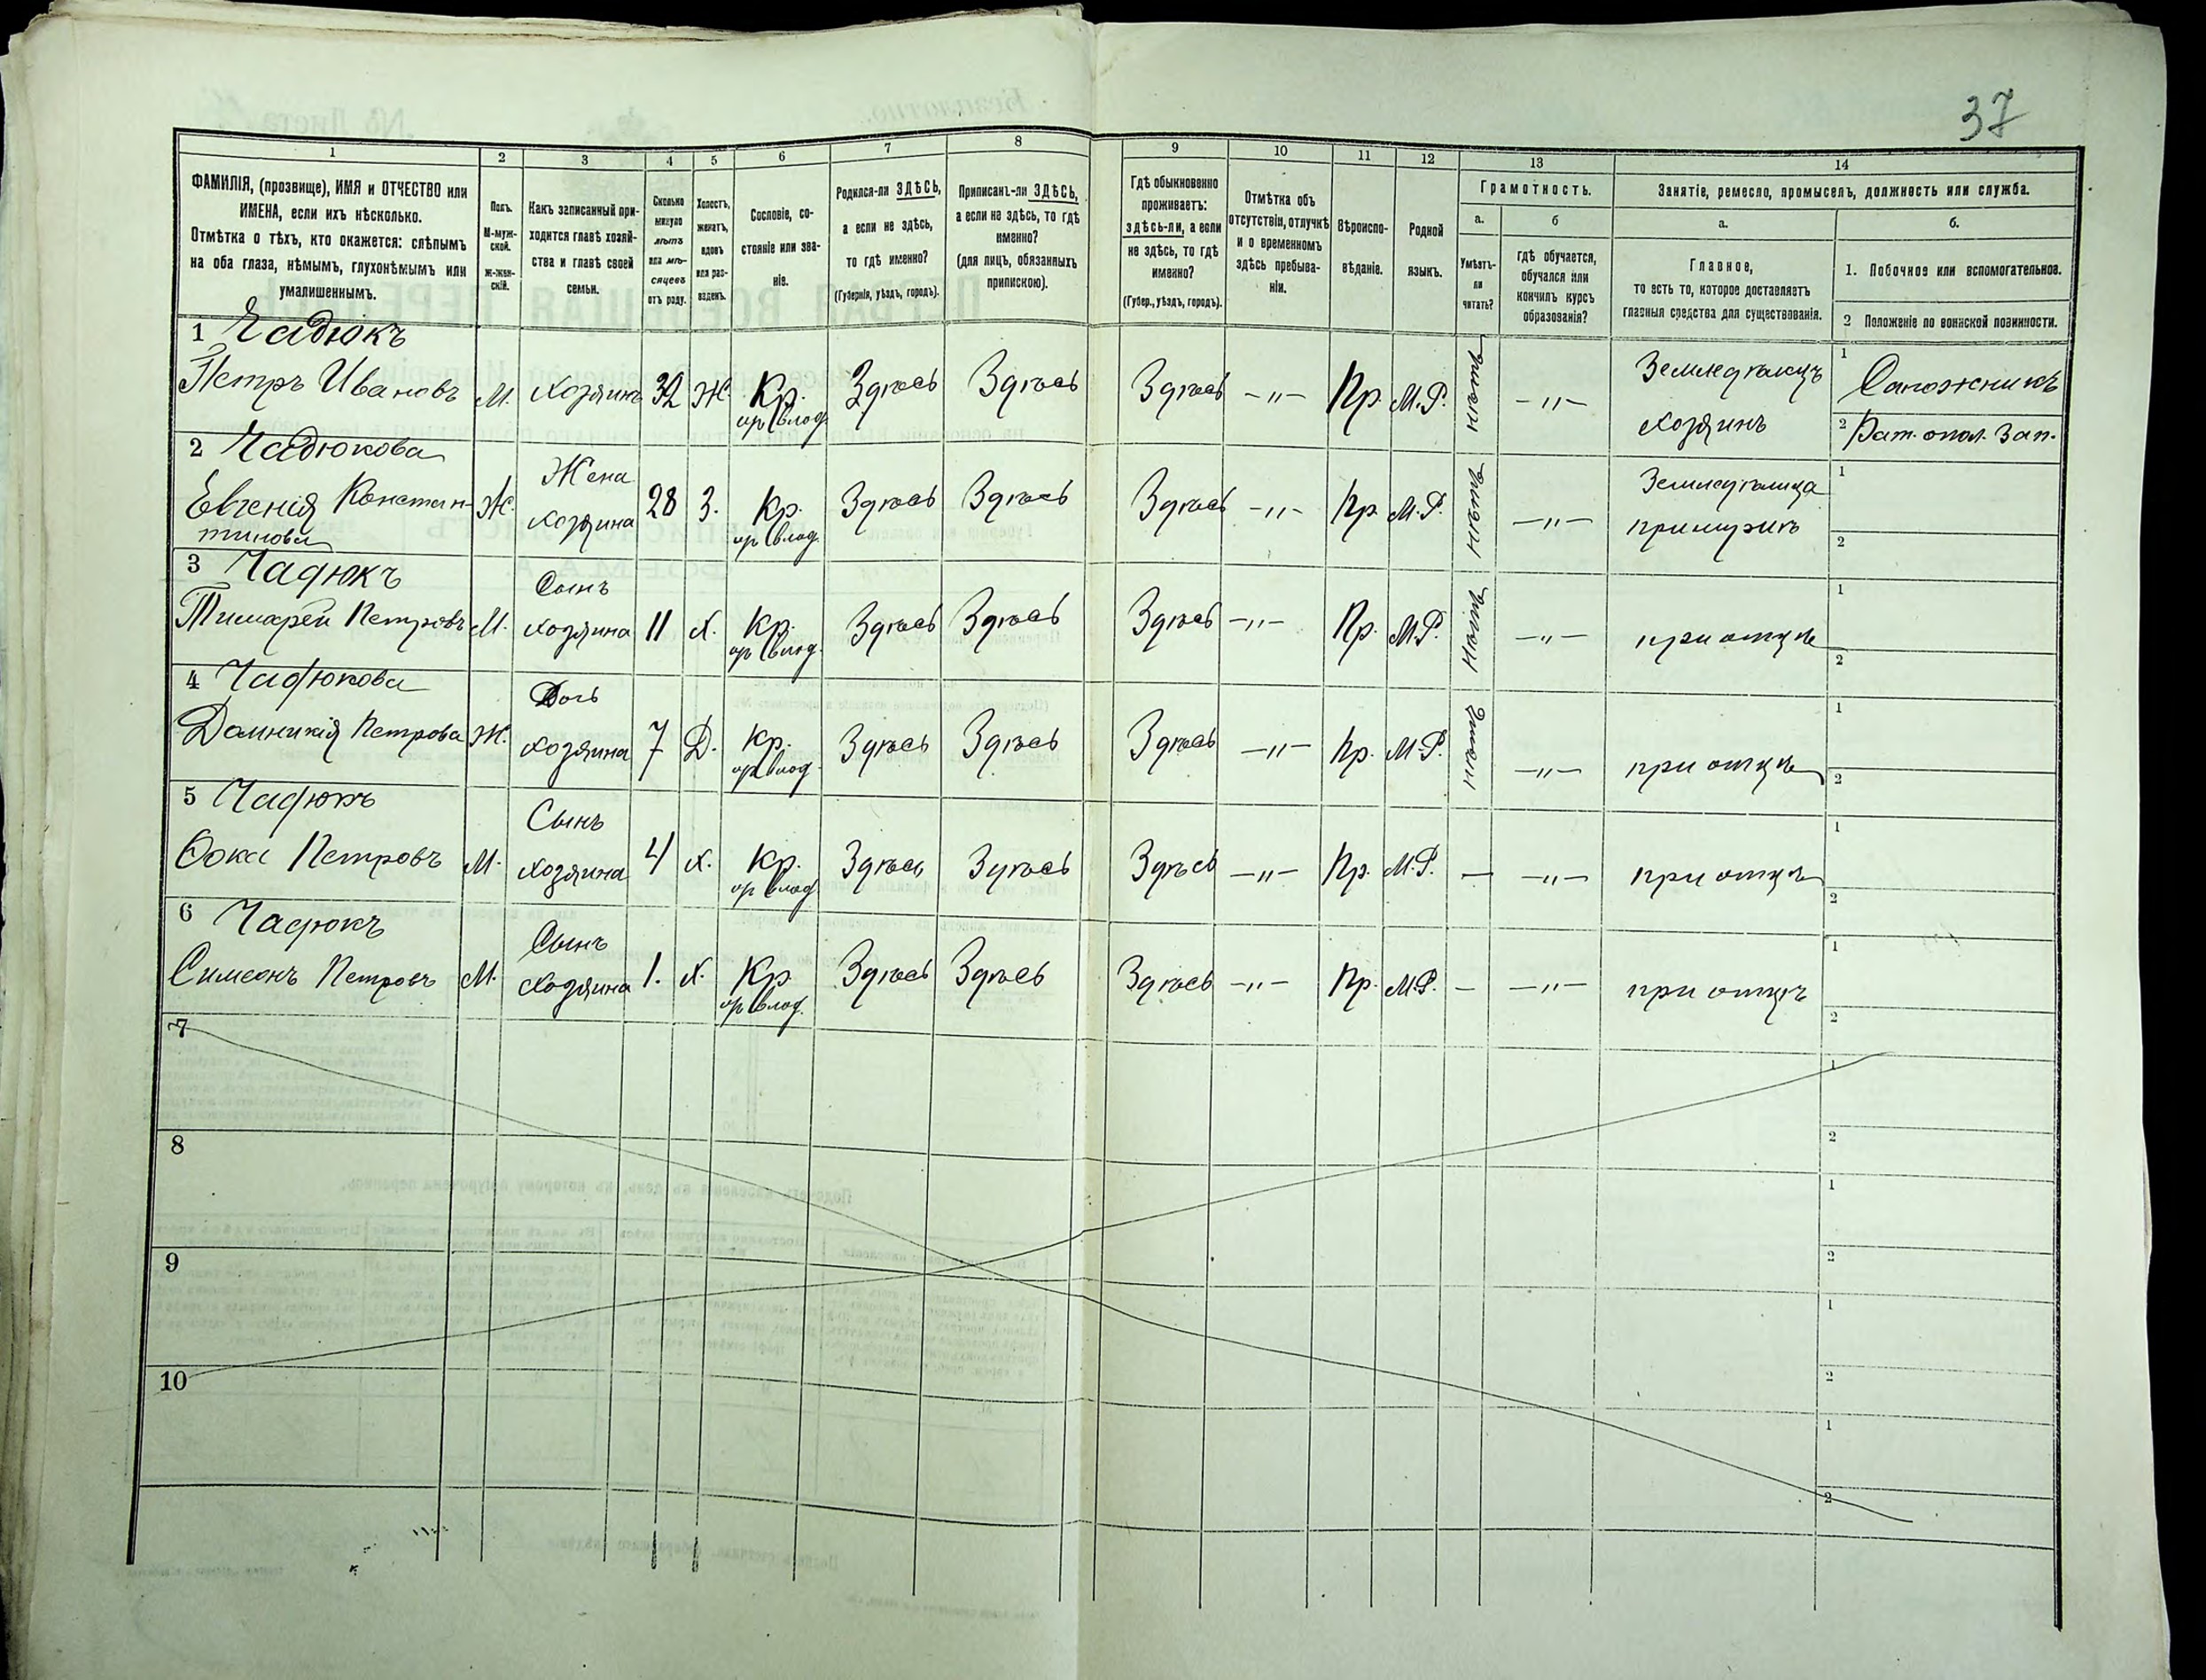 37
1
2
3
4
5
6
7
8
9
10
11
12
13
14
ФАМИЛІЯ, (прозвище), ИМЯ и ОТЧЕСТВО или
ИМЕНА, если ихъ нѣсколько.
Отмѣтка о тѣхъ, кто окажется: слѣпымъ
на оба глаза, нѣмымъ, глухонѣмымъ или
умалишеннымъ.
Полъ.
М-муж-
ской.
ж-жен-
скій.
Какъ записанный при-
ходится главѣ хозяй-
ства и главѣ своей
семьи.
Сколько
минуло
лѣтъ
или мѣ-
сяцевъ
отъ роду.
Холостъ,
женатъ,
вдовъ
или раз-
веденъ.
Сословіе, со-
стояніе или зва-
ніе.
Родился-ли ЗДѢСЬ,
а если не здѣсь,
то гдѣ именно?
(Губернія, уѣздъ, городъ).
Приписанъ-ли ЗДѢСЬ,
а если не здѣсь, то гдѣ
именно?
(для лицъ, обязанныхъ
припискою).
Гдѣ обыкновенно
проживаетъ:
здѣсь-ли, а если
не здѣсь, то гдѣ
именно?
(Губер., уѣздъ, городъ).
Отмѣтка объ
отсутствіи, отлучкѣ
и о временномъ
здѣсь пребыва-
ніи.
Вѣроиспо-
вѣданіе.
Родной
языкъ.
Грамотность.
а.
Умѣетъ-
ли
читать?
б
Гдѣ обучается,
обучался или
кончилъ курсъ
образованія?
Занятіе, ремесло, промыселъ, должность или служба.
а.
Главное,
то есть то, которое доставляетъ
главныя средства для существованія.
б.
1. Побочное или вспомогательное.
2 Положеніе по воинской повинности.
1 Чадюкъ
Петръ Ивановъ М. Хозяинъ 32 Ж. Кр. Здѣсь Здѣсь Здѣсь —"— Пр. М.Р. нѣтъ —"— Земледѣлецъ 1 Сапожникъ
хозяинъ 2 Рат. опол. Зап.
2 Чадюкова
Евгенія Констан- Ж. Жена 28 З. Кр. Здѣсь Здѣсь Здѣсь —"— Пр. М.Р. —"— 1
тинова хозяина при мужѣ 2
3 Чадюкъ
Петровъ М. Сынъ 11 Х. Кр. Здѣсь Здѣсь Здѣсь —"— Пр. М.Р. нѣтъ —"— при отцѣ 1
хозяина 2
4 Чадюкова
Домникія Петрова Ж. Дочь 7 Д. Кр. Здѣсь Здѣсь Здѣсь —"— Пр. М.Р. нѣтъ —"— при отцѣ 1
хозяина 2
5 Чадюкъ
Ѳока Петровъ М. Сынъ 4 Х. Кр. Здѣсь Здѣсь Здѣсь —"— Пр. М.Р. — —"— при отцѣ 1
хозяина 2
6 Чадюкъ
Симеонъ Петровъ М. Сынъ 1. Х. Кр. Здѣсь Здѣсь Здѣсь —"— Пр. М.Р. — —"— при отцѣ 1
хозяина 2
7
1
2
8
1
2
9
1
2
10
1
2